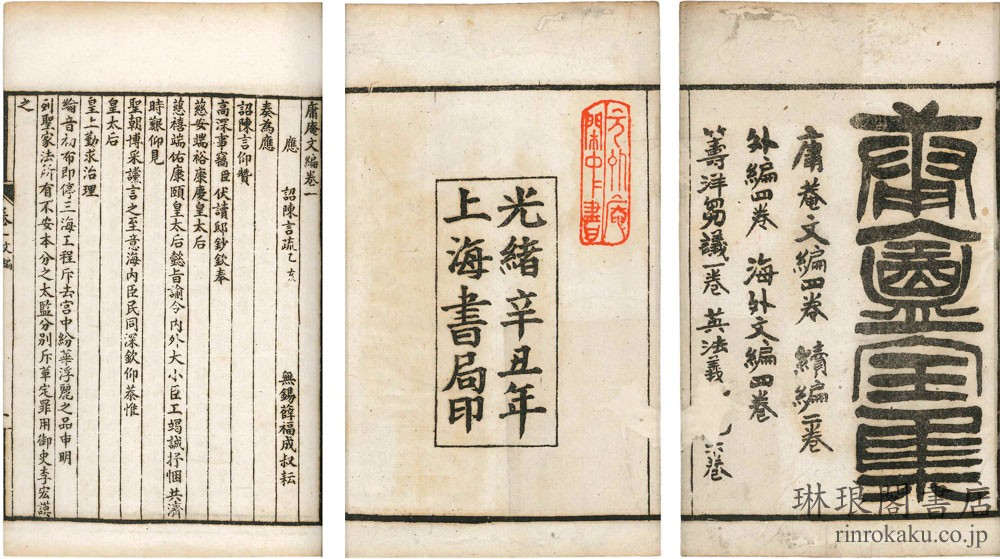 庸盦全集
庸菴文編四卷 續編二卷
外編四卷 海外文編四卷
籌洋芻議一卷 英法義 六卷
光緒辛丑年
上海書局印
庸庵文編卷一
應 詔陳言疏乙亥
無錫薛福成叔耘
奏為應
詔陳言仰贊
高深事竊臣伏讀邸鈔欽奉
慈安端裕康慶皇太后
慈禧端佑康頤皇太后懿旨諭令內外大小臣工竭誠抒悃共濟
時艱仰見
聖朝博采讜言之至意海內臣民同深欽仰恭惟
皇太后
皇上勤求治理
綸音初布即停三海工程斥去宮中紛華浮麗之品申明
列聖家法所有不安本分之太監分別斥革定罪用御史李宏謨
之
琳琅閣書店
rinrokaku.co.jp